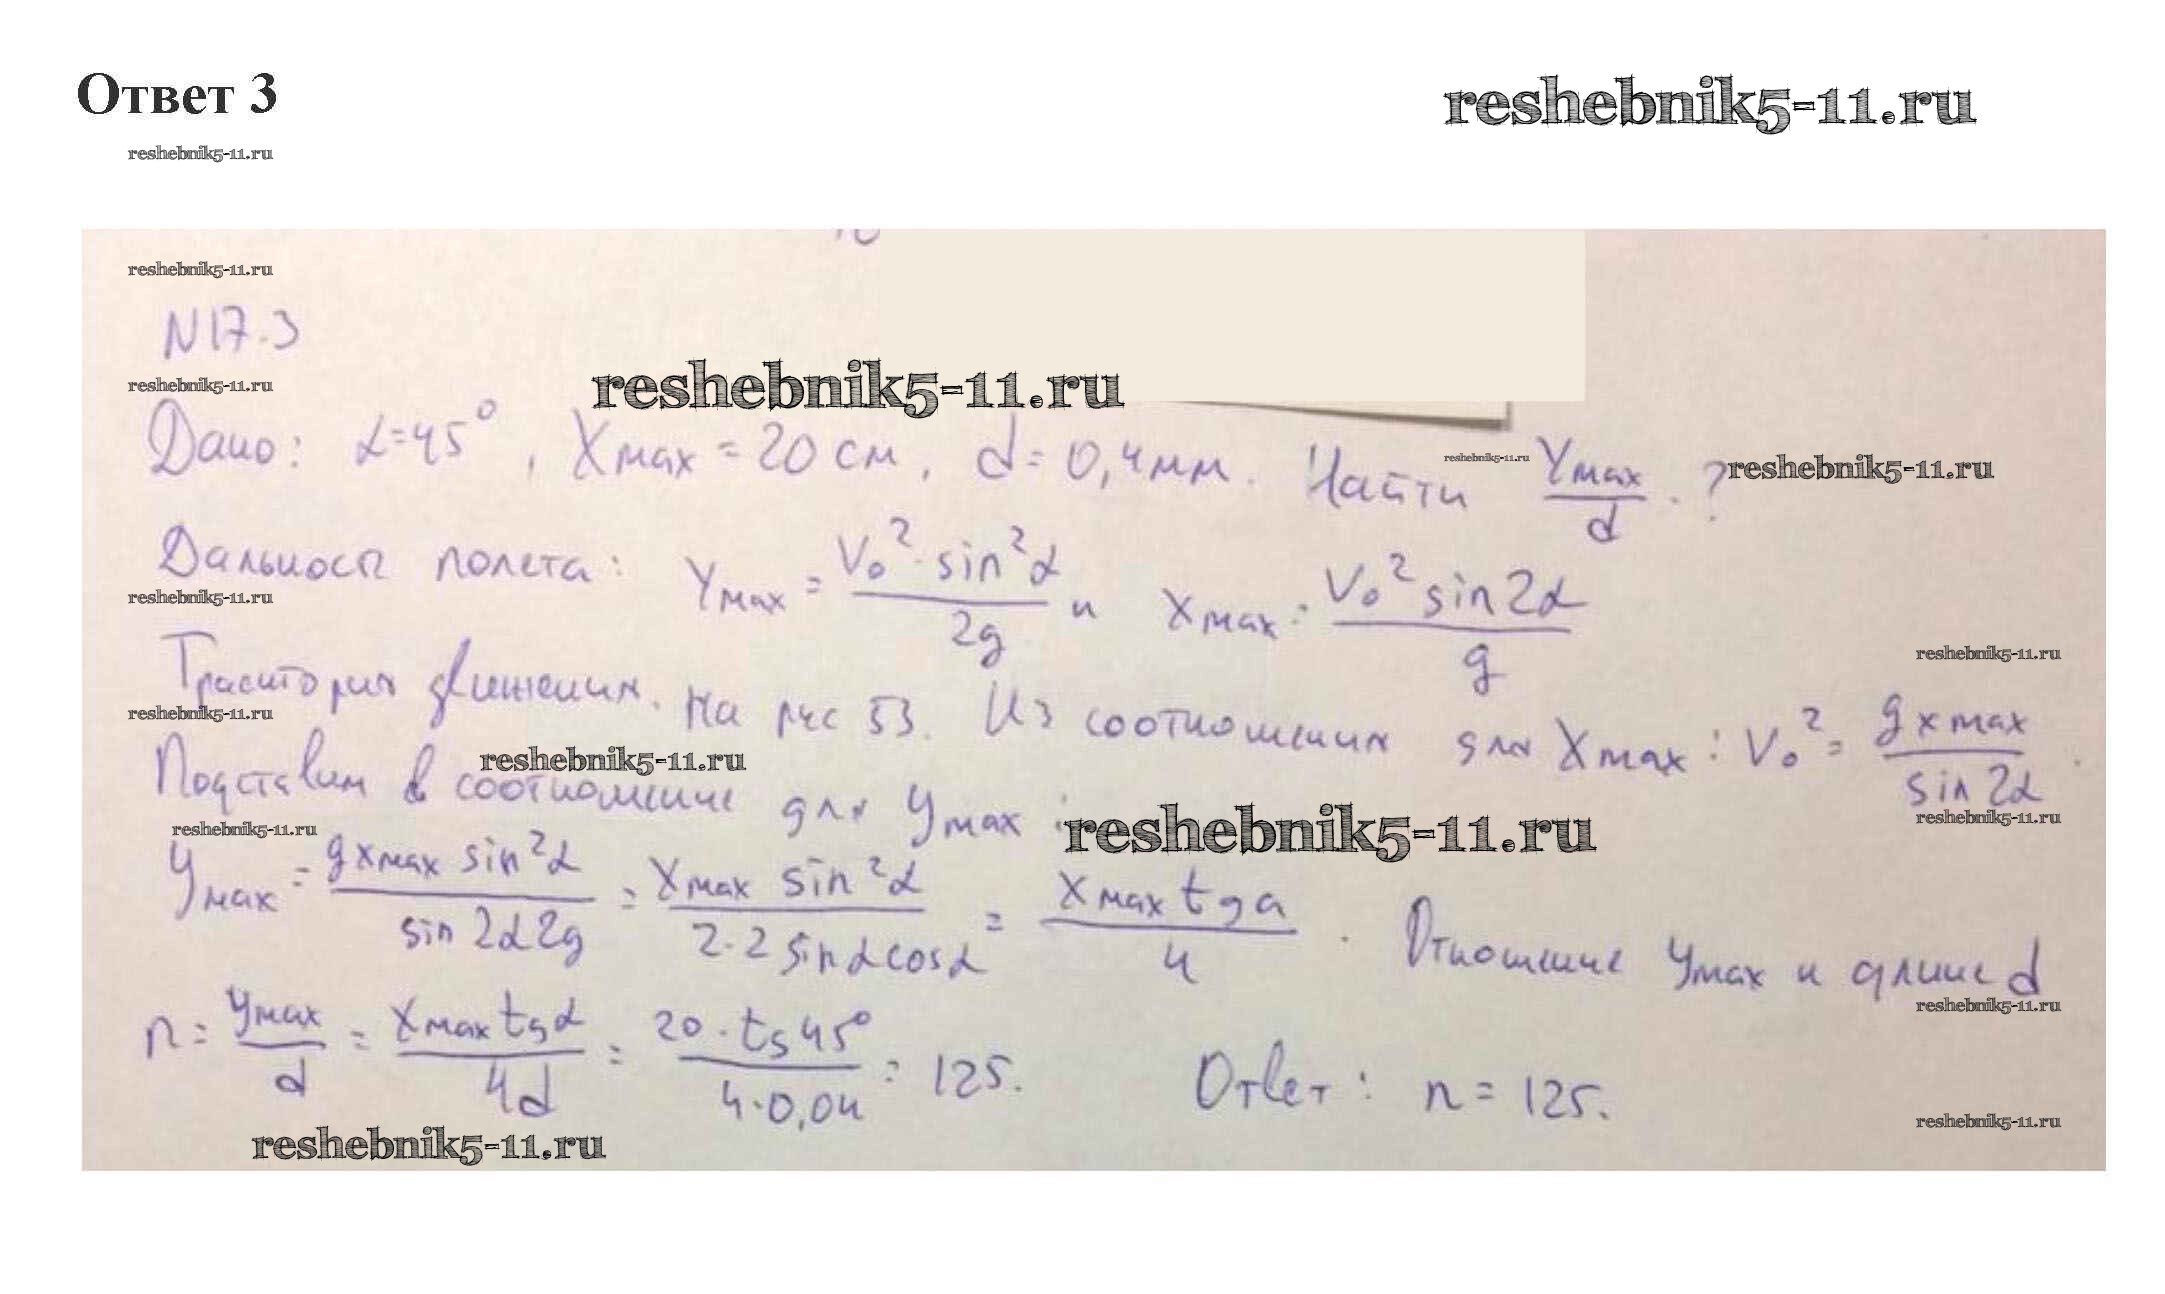 Ответ 3
reshebnik5-11.ru
reshebnik5-11.ru
reshebnik5-11.ru
N17.3
reshebnik5-11.ru
reshebnik5-11.ru
Дано: α=45°, Xmax = 20 см, d = 0,4 мм. Найти Ymax/d. ?
reshebnik5-11.ru
reshebnik5-11.ru
Дальность полета: Ymax = V₀²·sin²α/2g и Xmax = V₀² sin2α/g
reshebnik5-11.ru
Траектория движения. На рис 53. Из соотношения для Xmax: V₀² = g xmax/sin2α.
reshebnik5-11.ru
reshebnik5-11.ru
Подставим в соотношение для Ymax:
reshebnik5-11.ru
reshebnik5-11.ru
reshebnik5-11.ru
reshebnik5-11.ru
Ymax = g xmax sin²α/sin2α2g = Xmax sin²α/2·2sinαcosα = Xmax tga/4. Отношение Ymax и длине d
reshebnik5-11.ru
n = Ymax/d = Xmax tgα/4d = 20·tg45°/4·0,04 = 125. Ответ: n = 125.
reshebnik5-11.ru
reshebnik5-11.ru